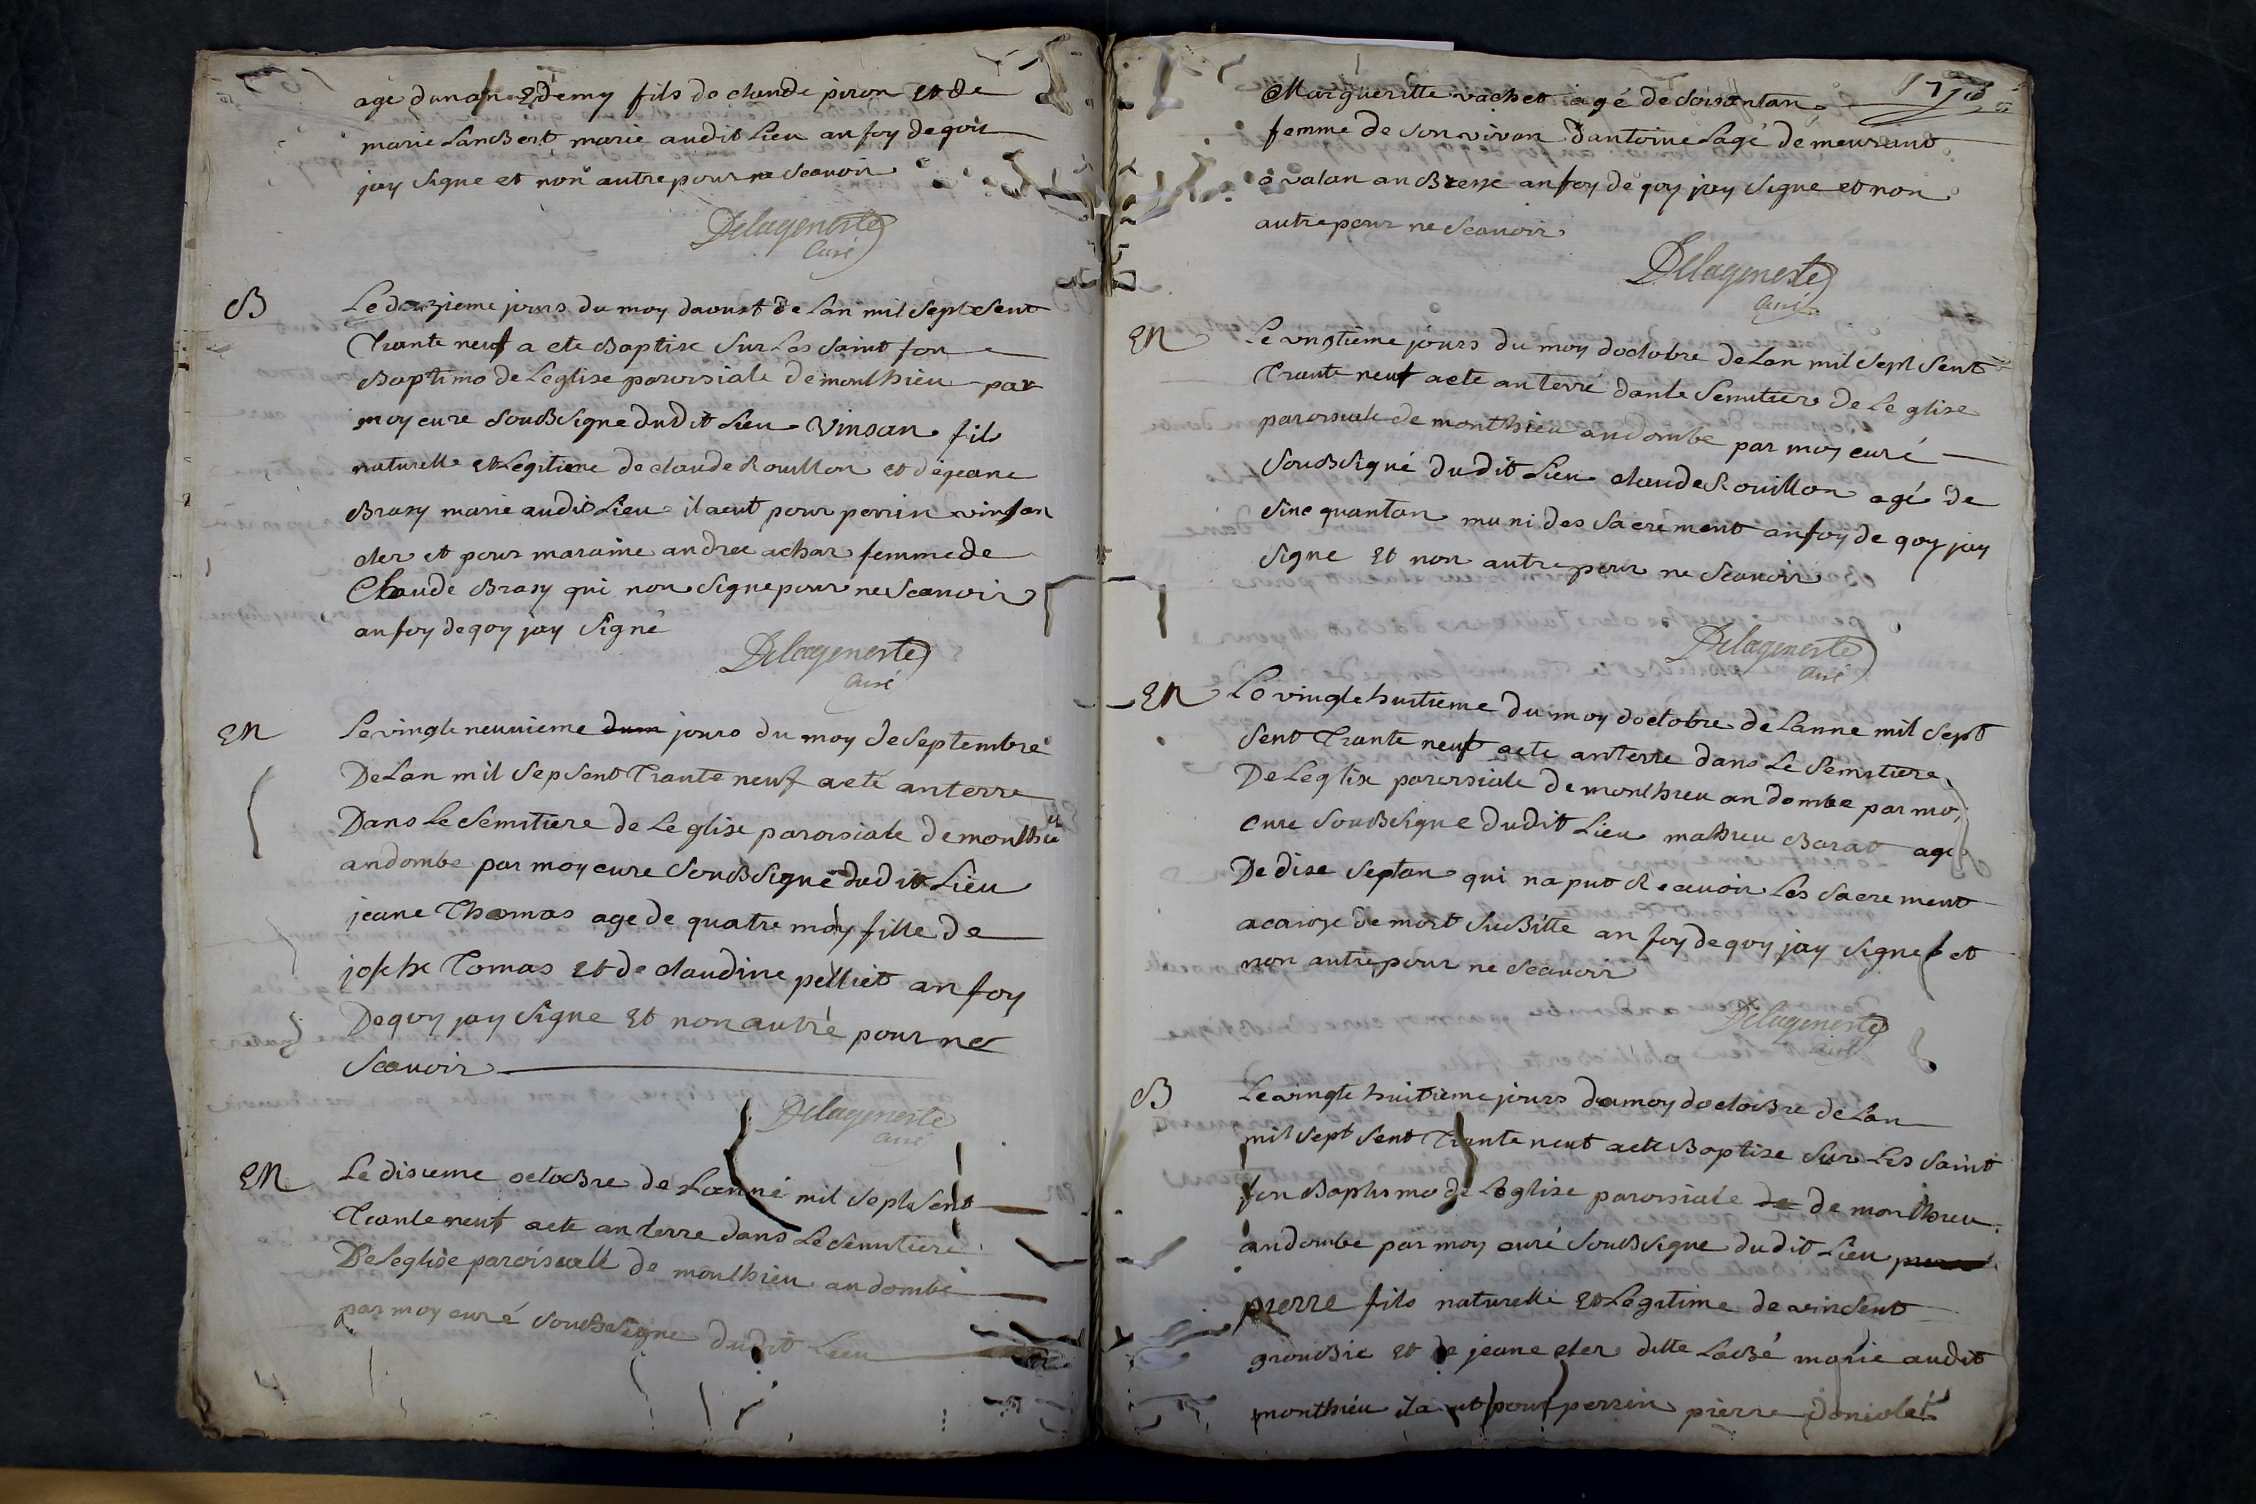 age dun an Et demy fils de claude piron et de
marie Lambert marie audit Lieu an foy de quoi
jay signe et non autre pour ne scavoir
Delageneste
Curé
B
Le douzieme jours du moy daoust de Lan mil sept sent
Trante neuf a ete Baptise sur Les saint fon
Baptimo de Leglise paroisiale de monthieu par
moy cure souBsigne dudit Lieu vinsan fils
naturelle et Legitime de claude Rouillon et de jeane
Brasy marie audit Lieu il a eut pour perrin vinsan
cler et pour maraine andree achar femme de
Claude Brasy qui non signe pour ne scavoir
an foy de qoy jay signé
Delageneste
Curé
EN
Le vingte neuvieme dum jours du moy de septembre
De Lan mil sep sent Trante neuf a eté anterre
Dans Le semitiere de Leglise paroisiale de monthieu
andombe par moy cure souBsigné dudit Lieu
jeane Thomas age de quatre moy fille de
josehe Tomas et de claudine pelliet an foy
De qoy jay signe Et non autre pour ne
scavoir
Delageneste
Curé
EN
Le disieme octoBre de Lanné mil sept sent
Trante neuf a ete anterre dans Le semitiere
De leglise paroisialle de monthieu andombe
par moy curé souBsigne dudit Lieu
Margueritte vachet agé de soisantan
femme de son vivan dantoine Lagé demeurant
a valan an Bresse an foy de qoy jay signe et non
autre pour ne scavoir
Delageneste
Curé
EN
Le vingtieme jours du moy doctobre de Lan mil sept sent
Trante neuf a ete anterré dans le semitiere de Leglise
paroisiale de monthieu andombe par moy curé
souBsigné dudit Lieu claude Rouillon agé de
sinc quantan muni des sacrement an foy de qoy jay
signe Et non autre pour ne scavoir
Delageneste
Curé
EN
Le vingte huitieme du moy doctobre de Lanne mil sept
sent Trante neuf a ete anterre dans Le semitiere
De Leglise paroisiale de monthieu andombe par moy
cure souBsigne dudit Lieu mathieu Barat age
De dise septan qui na put Recevoir Les sacrement
a cause de mort suBitte an foy de qoy jay signe et
non autre pour ne scavoir
Delageneste
Curé
B
Le vingte huitieme jours du moy doctoBre de Lan
mil sept sent Trante neuf a ete Baptise sur Les saint
fon Baptismo de Leglise paroisiale de de monthieu
andombe par moy curé souBsigne dudit Lieu
pierre fils naturelle Et Legitime de vinsent
grouBie Et de jeane cler ditte LaBé marie audit
monthieu il a ut pour perrin pierre